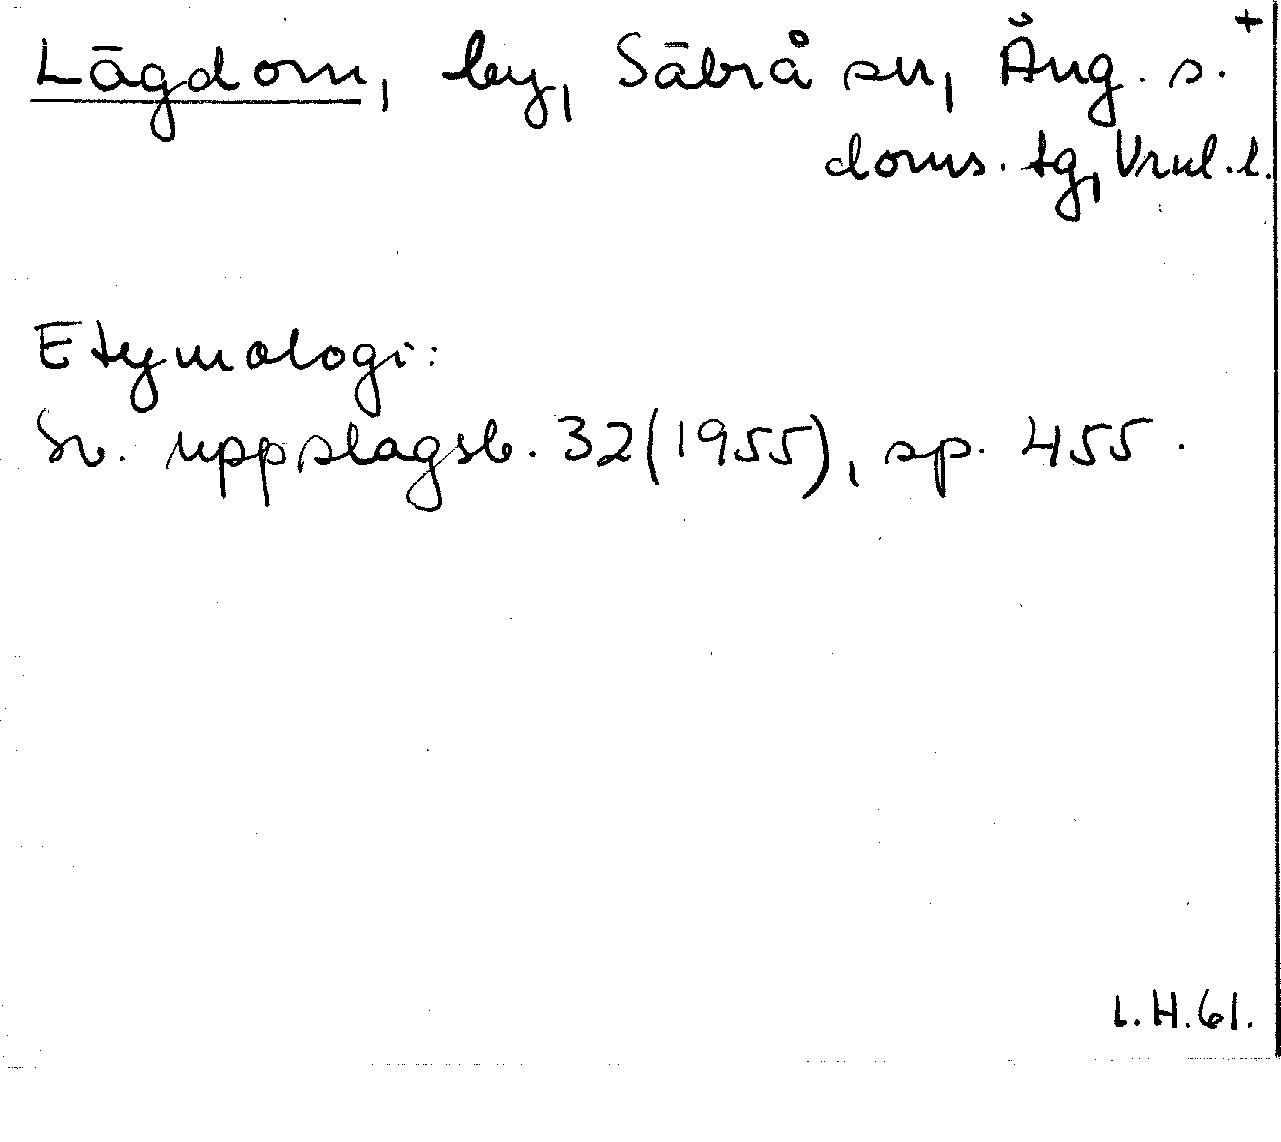 +
Lägdom, by, Säbrå sn, Ång. s.
doms. tg, Vrnl. l.
Etymologi:
Sv. uppslagsb. 32(1955), sp. 455.
L.H.61.